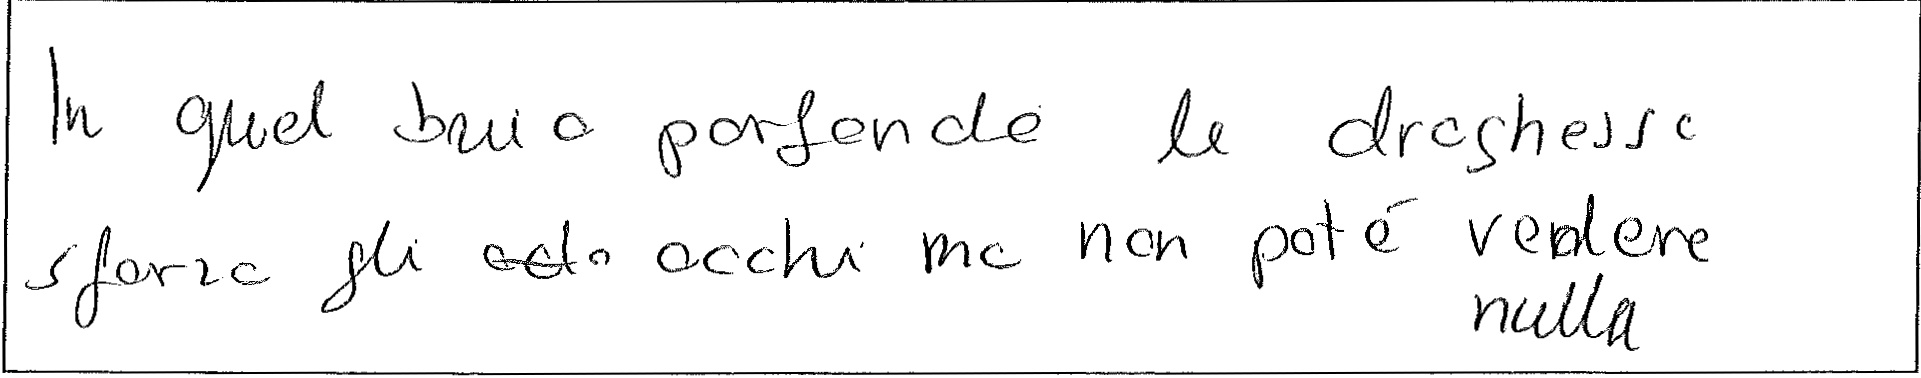 In quel buio porfondo la draghessa
sforza gli occhi ma non poté vedere
nulla